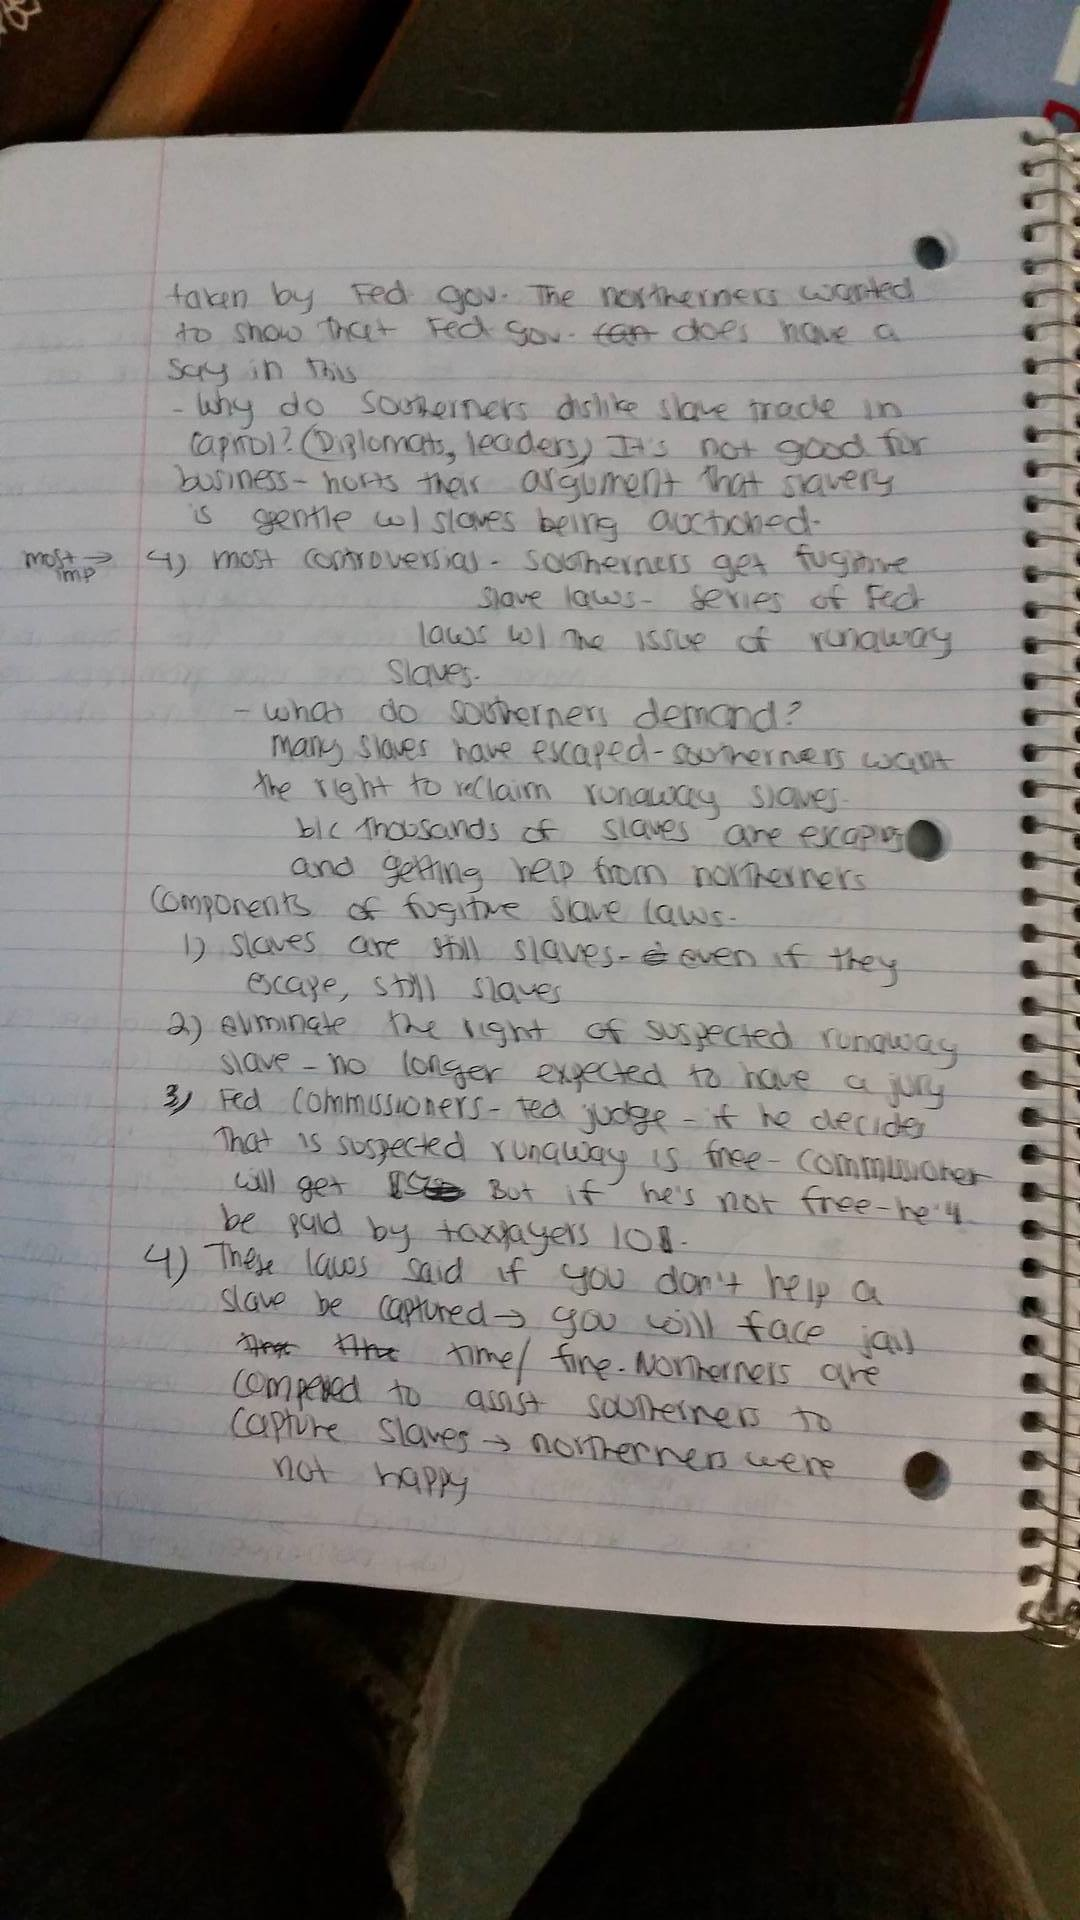 taken by Fed gov. The northerners wanted
to show that Fed gov. does have a
say in this
- Why do Southerners dislike slave trade in
capitol? (Diplomats, leaders) It's not good for
business - hurts their argument that slavery
is gentle w/ slaves being auctioned.
most imp → 4) most controversial - Southerners get fugitive
slave laws - series of Fed
laws w/ the issue of runaway
slaves.
- what do southerners demand?
many slaves have escaped - southerners want
the right to reclaim runaway slaves.
b/c thousands of slaves are escaping
and getting help from northerners
Components of fugitive slave laws.
1) slaves are still slaves - even if they
escape, still slaves
2) eliminate the right of suspected runaway
slave - no longer expected to have a jury
3) Fed commissioners - fed judge - if he decides
that is suspected runaway is free - commissioner
will get But if he's not free - he'll
be paid by taxpayers 10$.
4) These laws said if you don't help a
slave be captured → you will face jail
time/ fine. Northerners are
compelled to assist southerners to
capture slaves → northerners were
not happy